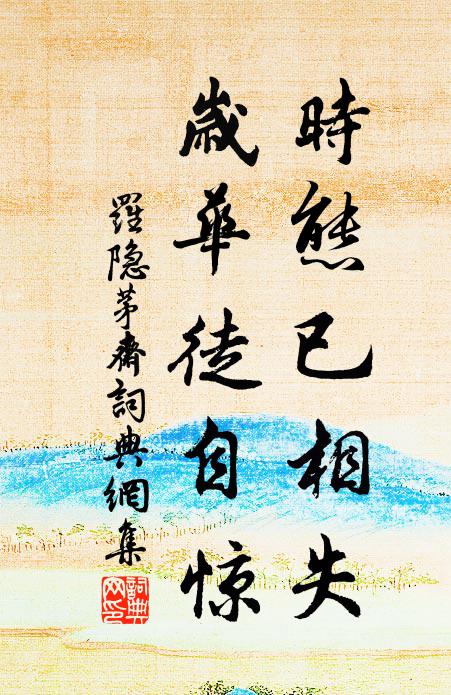 時態已相失
歲華徒自惊
羅隐茅齋詞典網集